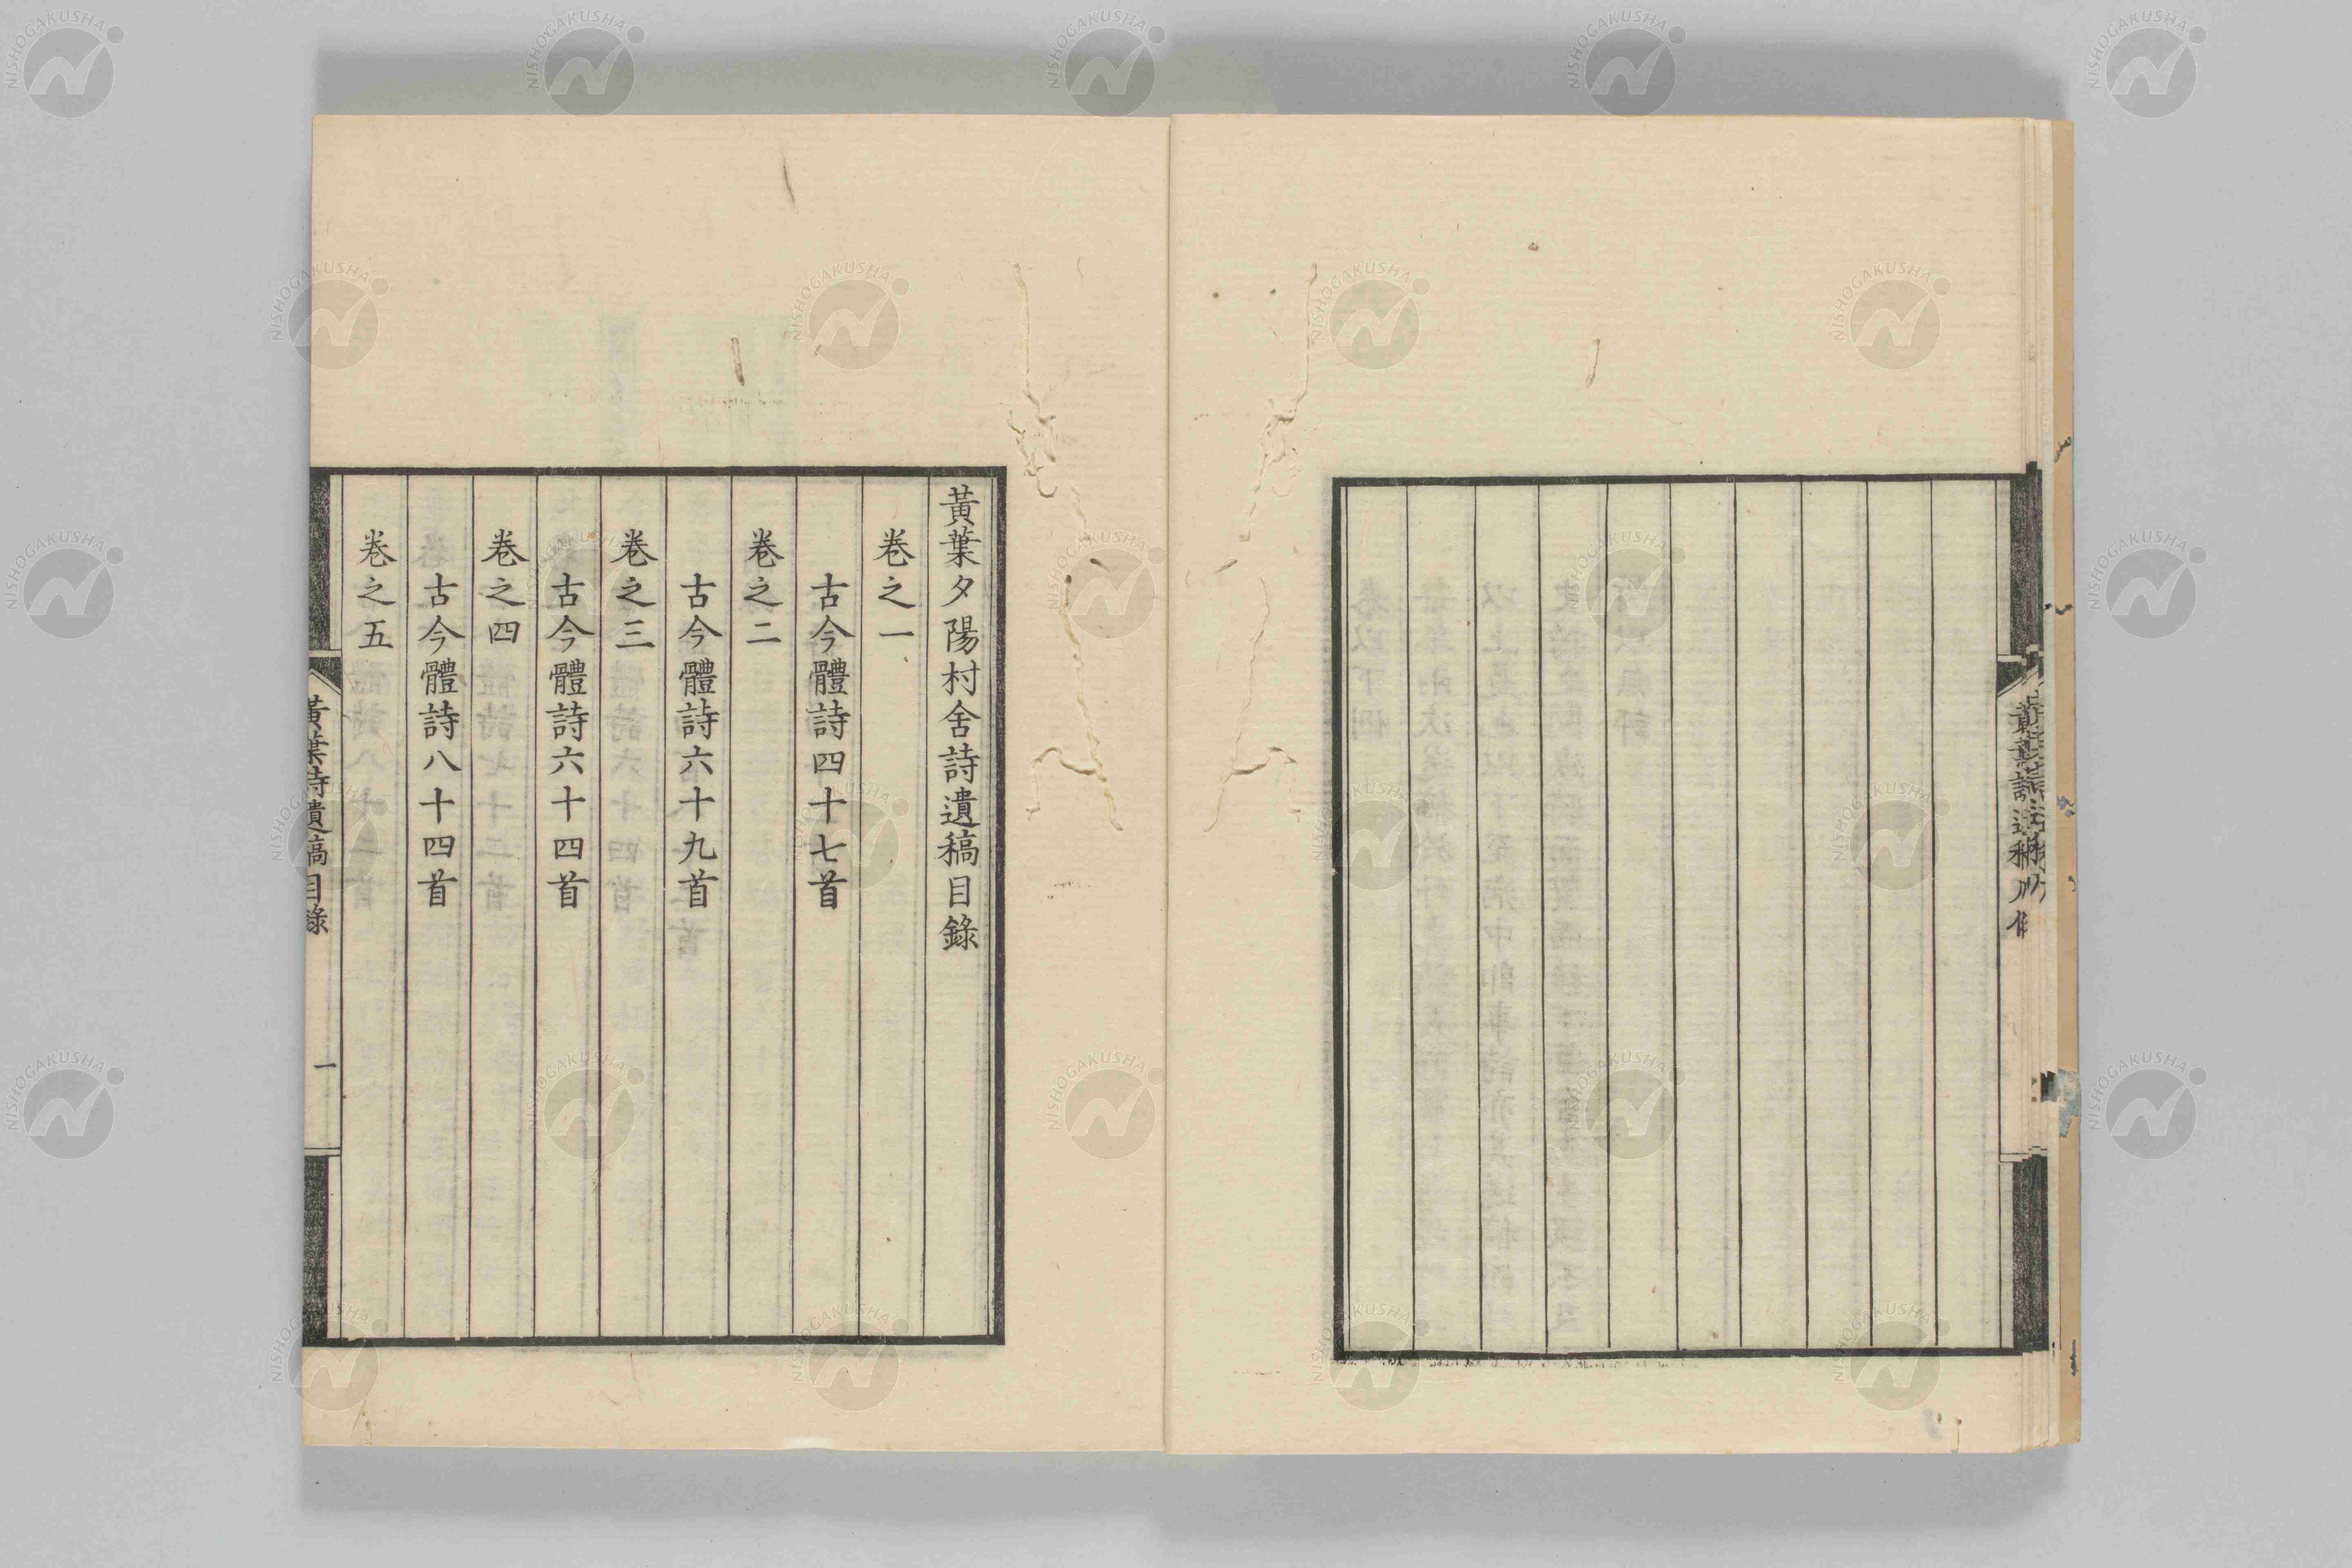 黃葉夕陽村舍詩遺稿目錄
卷之一
古今體詩四十七首
卷之二
古今體詩六十九首
卷之三
古今體詩六十四首
卷之四
古今體詩八十四首
卷之五
黃葉詩遺稿目錄
一
NISHOGAKUSHA